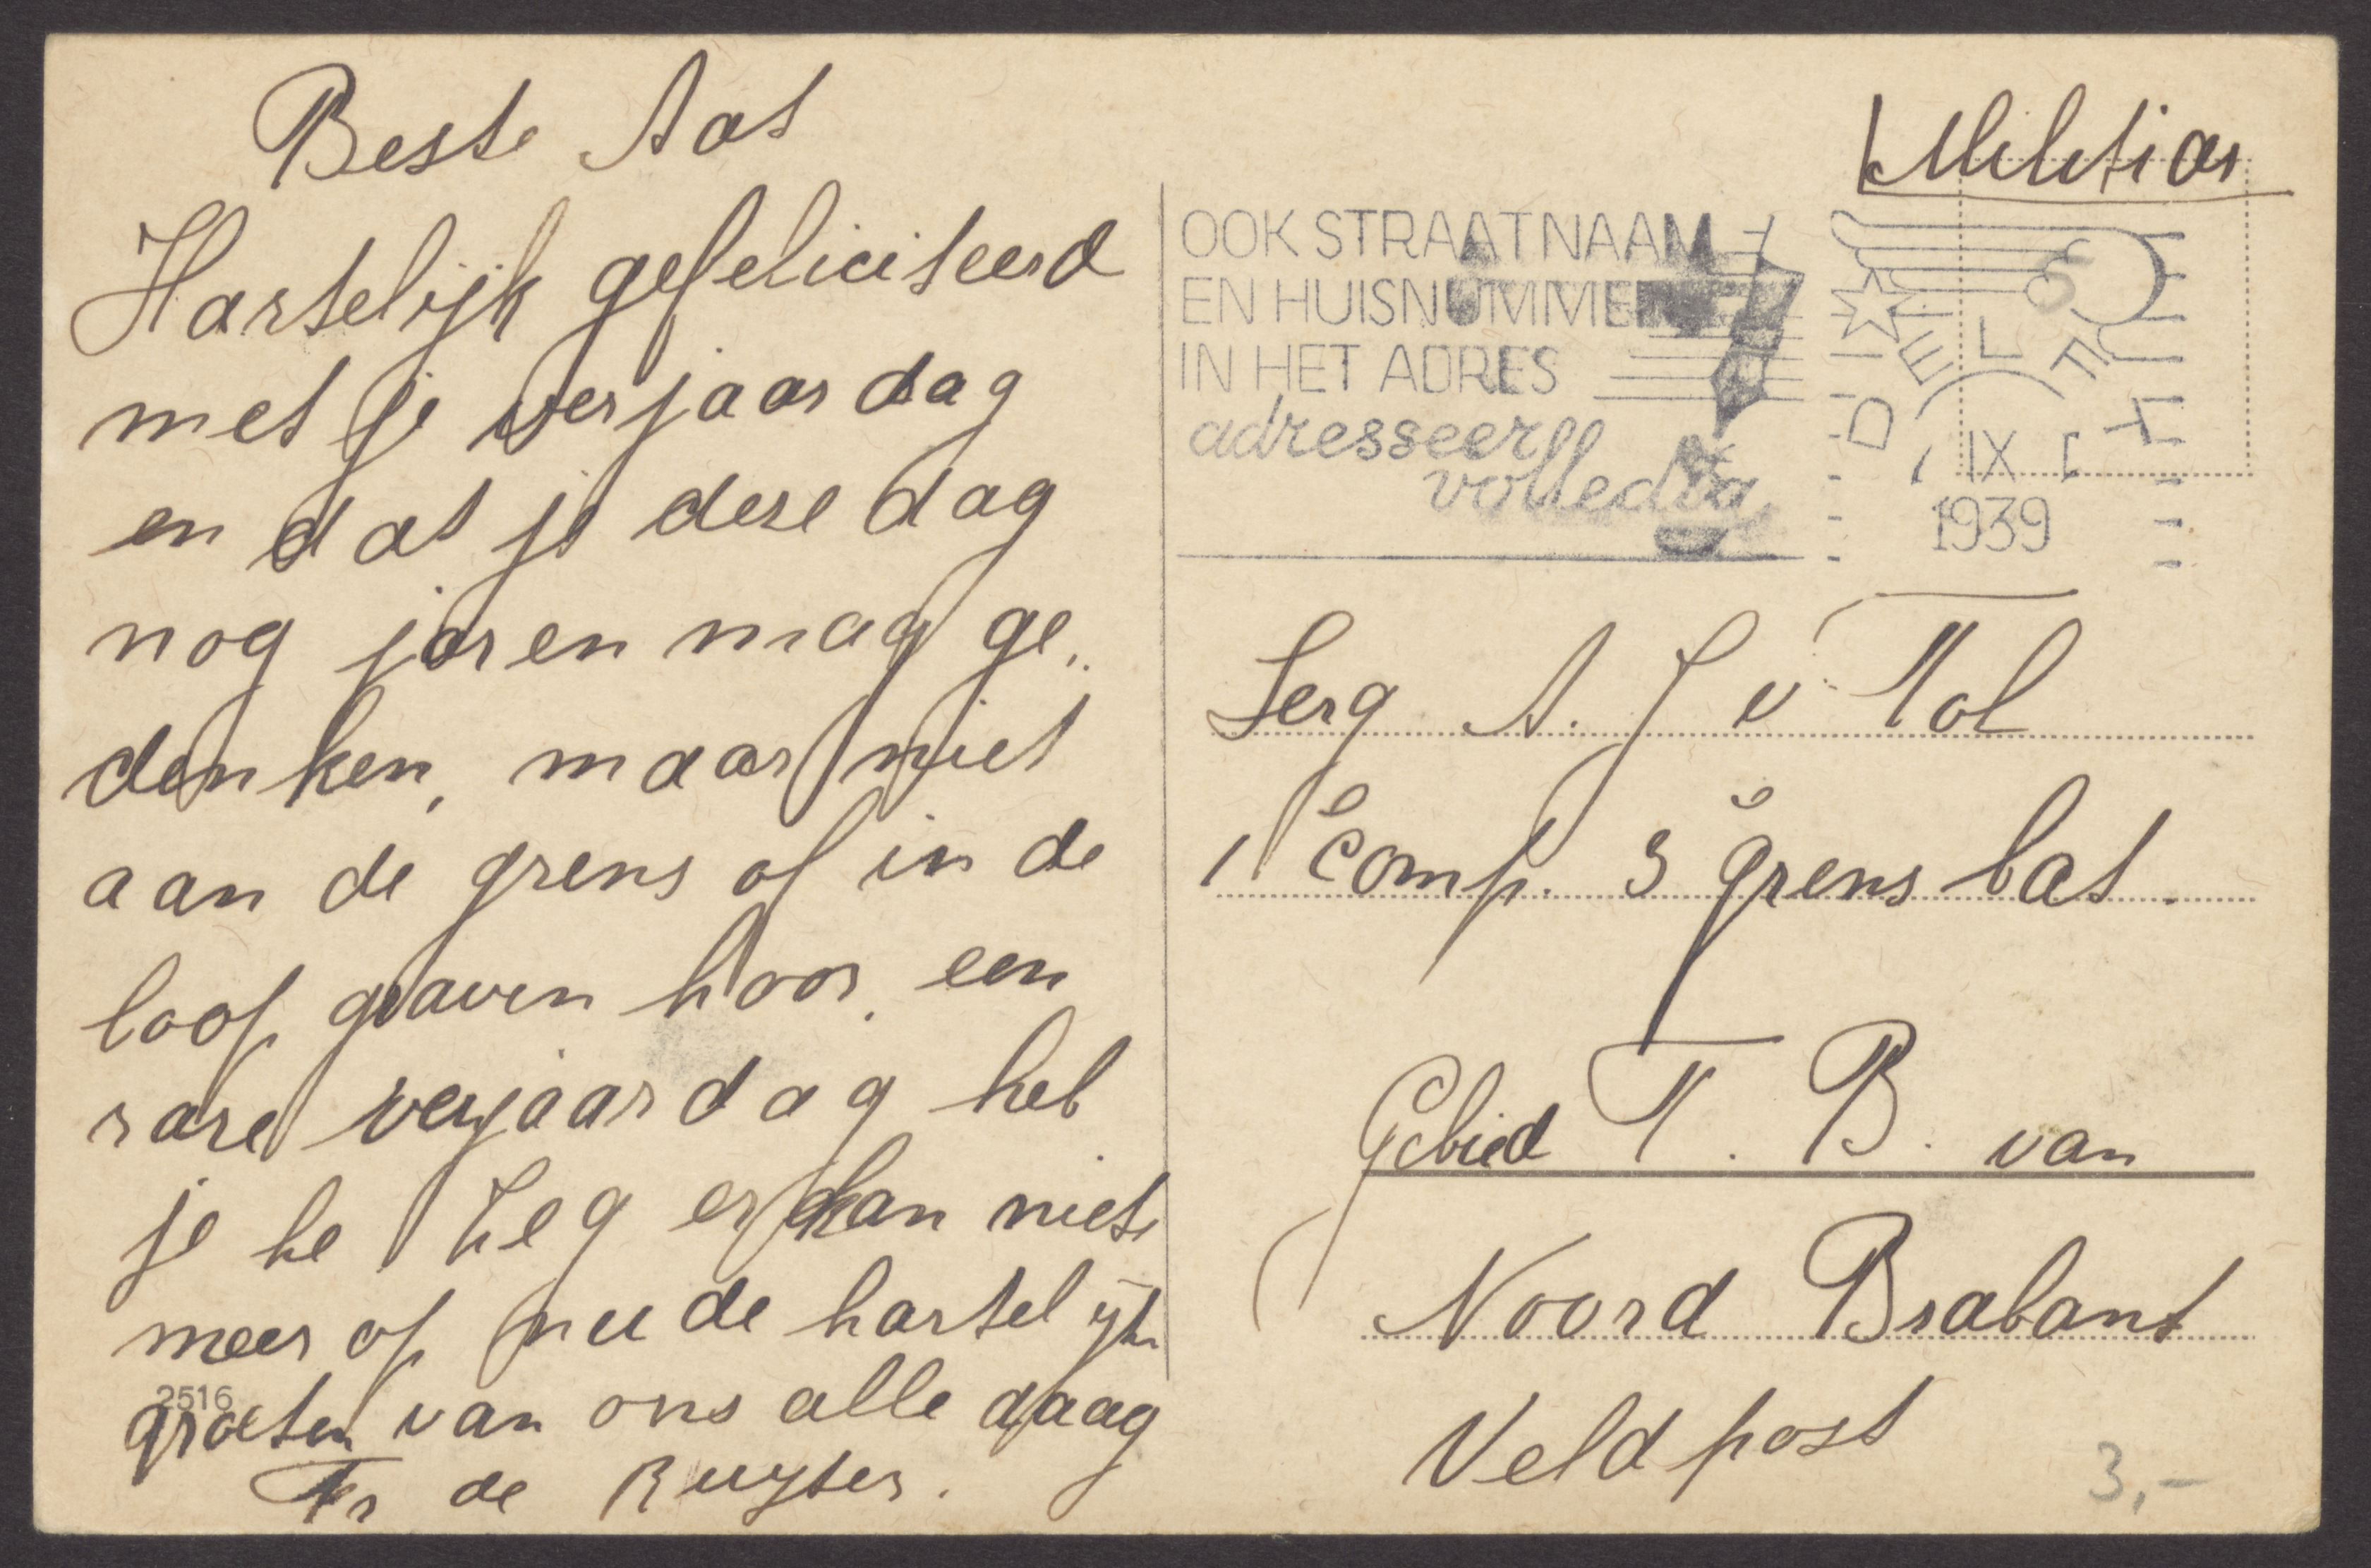 Beste Aat
Hartelijk gefeliciteerd
met je verjaardag
en dat je deze dag
nog jaren mag ge„
denken, maar niet
aan de grens of in de
loop graven hoor. een
rare verjaardag heb
je he zeg er kan niets
meer op nu de hartelijke
groeten van ons alle daag
Fr de Ruyter.
2516
Militiar
OOK STRAATNAAM
EN HUISNUMMER
IN HET ADRES
adresseer
volledig
DELFT
IX
1939
Serg A. J v. Tol
1e Comp. 3e grens bat.
Gebied T. B. van
Noord Brabant
Veldpost
3,-